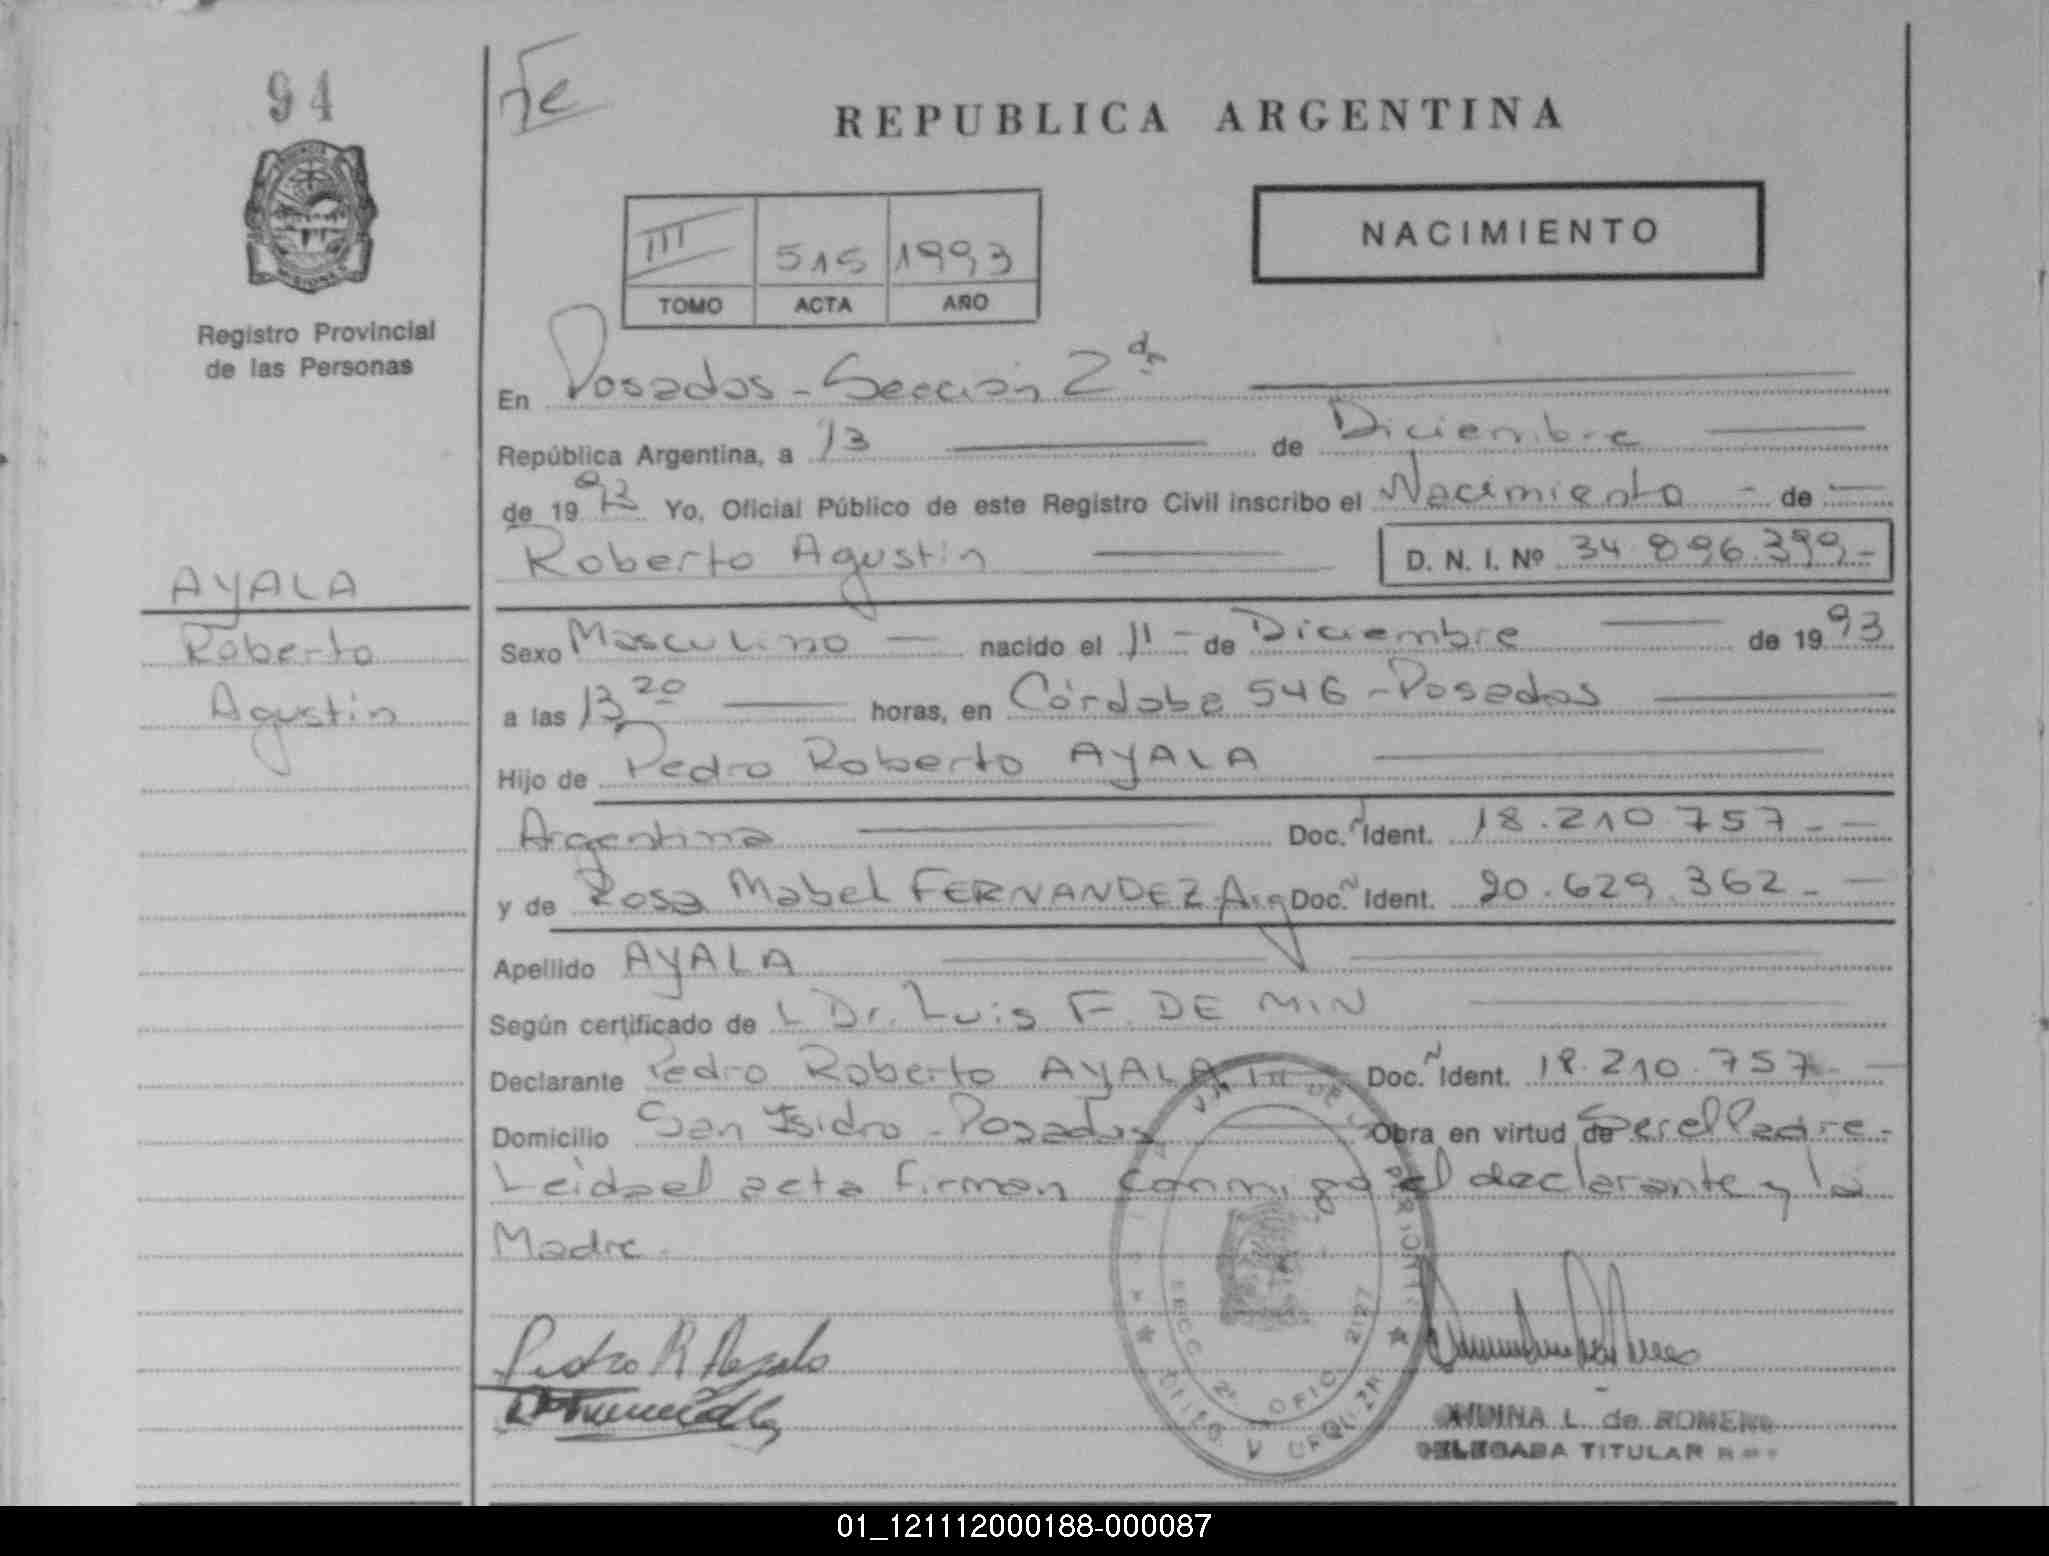 94
REPUBLICA ARGENTINA
NACIMIENTO
III 515 1993
TOMO ACTA AÑO
Registro Provincial
de las Personas
En Posadas - Sección 2da
República Argentina, a 13 de Diciembre
de 1993 Yo, Oficial Público de este Registro Civil inscribo el Nacimiento - de
Roberto Agustin D. N. I. Nº 34.896.399.-
AYALA
Roberto
Agustin
Sexo Masculino nacido el 11 - de Diciembre de 1993
a las 13 20 horas, en Córdoba 546 - Posadas
Hijo de Pedro Roberto AYALA
Argentina Doc. Ident. 18.210.757.-
y de Rosa Mabel FERNANDEZ - Arg Doc. Ident. 20.629.362.-
Apellido AYALA
Según certificado de L Dr. Luis F. DE MIN
Declarante Pedro Roberto AYALA Doc. Ident. 18.210.757.-
Domicilio San Isidro - Posadas Obra en virtud de Ser el Padre.-
Leida el acta firman conmigo el declarante y la
Madre.
Pedro R Ayala
SECC. 2ª OFIC. 2127
L. de ROMERO
DELEGADA TITULAR
01_121112000188-000087